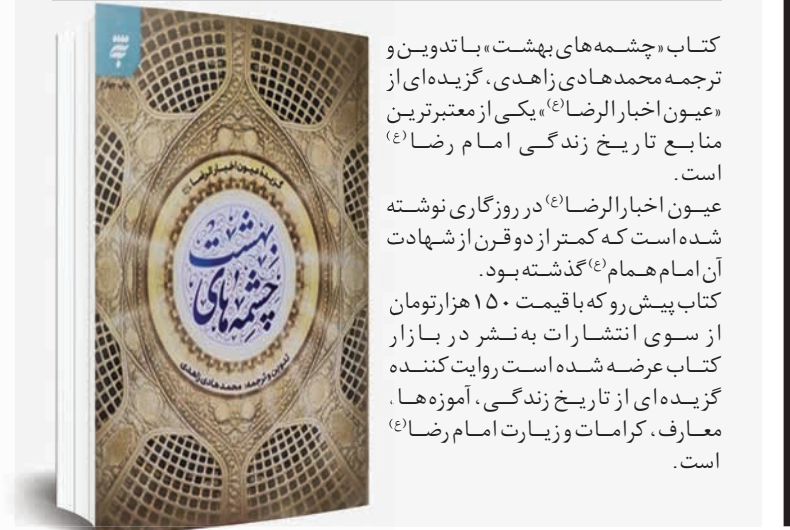 کتاب «چشمه‌های بهشت» با تدوین و
ترجمه محمدهادی زاهدی، گزیده‌ای از
«عیون اخبار الرضا(ع)» یکی از معتبرترین
منابع تاریخ زندگی امام رضا(ع)
است.
عیون اخبار الرضا(ع) در روزگاری نوشته
شده است که کمتر از دو قرن از شهادت
آن امام همام(ع) گذشته بود.
کتاب پیش رو که با قیمت ۱۵۰ هزار تومان
از سوی انتشارات به‌نشر در بازار
کتاب عرضه شده است روایت کننده
گزیده‌ای از تاریخ زندگی، آموزه‌ها،
معارف، کرامات و زیارت امام رضا(ع)
است.
گزیدهٔ عیون اخبار الرضا
چشمه‌های
بهشت
تدوین و ترجمه: محمدهادی زاهدی